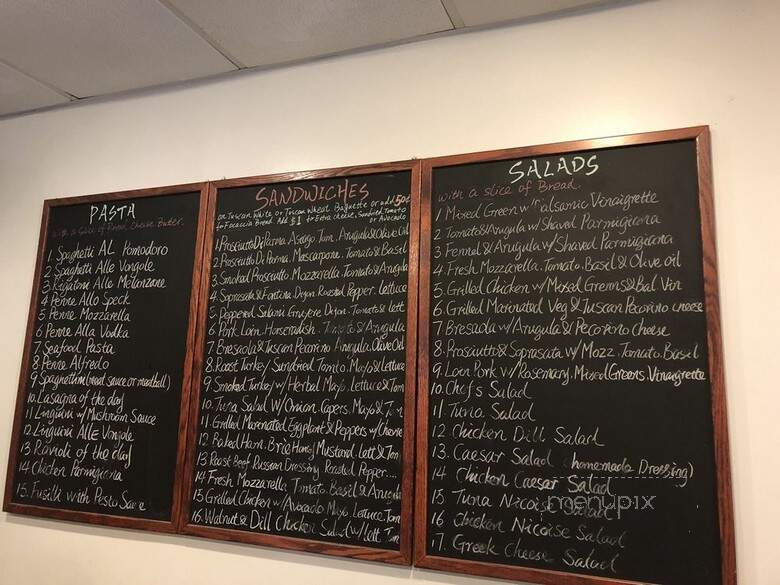 PASTA
with a Slice of Bread, Cheese, Butter
1. Spaghetti AL Pomodoro
2 Spaghetti Alle Vongole
3 Rigatoni Alle Melanzane
4 Penne Allo Speck
5 Penne Mozzarella
6 Penne Alla Vodka
7 Seafood Pasta
8. Penne Alfredo
9 Spaghettini (meat sauce or meatball)
10. Lasagna of the day
11 Linguini w/ Mushroom Sauce
12 Linguini AllE Vongole
13 Ravioli of the day
14 Chicken Parmigiana
15. Fusilli with Pesto Sauce
SANDWICHES
on Tuscan White or Tuscan Wheat Baguette or add 50¢
to Focaccia Bread. Add $1 for Extra cheese, Sundried Tomato
or Avocado
1 Prosciutto Di Parma. Asiago Tom. Arugula & Olive Oil
2 Prosciutto Di Parma. Mascarpone. Tomato & Basil
3 Smoked Prosciutto. Mozzarella. Tomato & Arugula
4 Soprasata & Fontina Dijon. Roasted Pepper. Lettuce
5 Peppered Salami Gruyere Dijon. Tomato & Lett
6 Pork Loin Horseradish. Tomato & Arugula
7 Bresaola & Tuscan Pecorino Arugula. Olive Oil
8. Roast Turkey / Sundried Tomato. Mayo & Lettuce
9 Smoked Turkey w/ Herbal Mayo. Lettuce & Tom
10. Tuna Salad w/ Onion. Capers. Mayo & Tom
11. Grilled Marinated Eggplant & Peppers w/ Cheese
12 Baked Ham. Brie Honey Mustard. Lett & Tom
13 Roast Beef Russian Dressing Roasted Pepper...
14 Fresh Mozzarella Tomato Basil & Arugula
15 Grilled Chicken w/ Avocado Mayo. Lettuce. Tom
16. Walnut & Dill Chicken Salad w/ Lett. Tom
SALADS
with a slice of Bread.
1 Mixed Green w/ Balsamic Vinaigrette
2 Tomato & Arugula w/ Shaved Parmigiana
3 Fennel & Arugula w/ Shaved Parmigiana
4 Fresh Mozzarella. Tomato. Basil & Olive oil
5 Grilled Chicken w/ Mixed Greens & Bal Vin
6 Grilled Marinated Veg & Tuscan Pecorino cheese
7 Bresaola w/ Arugula & Pecorino Cheese
8. Prosciutto & Soprasata w/ Mozz. Tomato. Basil
9. Loin Pork w/ Rosemary. Mixed Greens. Vinaigrette
10. Chef's Salad
11 Tuna Salad
12 Chicken Dill Salad
13. Caesar Salad (homemade Dressing)
14 Chicken Caesar Salad
15 Tuna Nicoise Salad
16 Chicken Nicoise Salad
17. Greek Cheese Salad
menupix